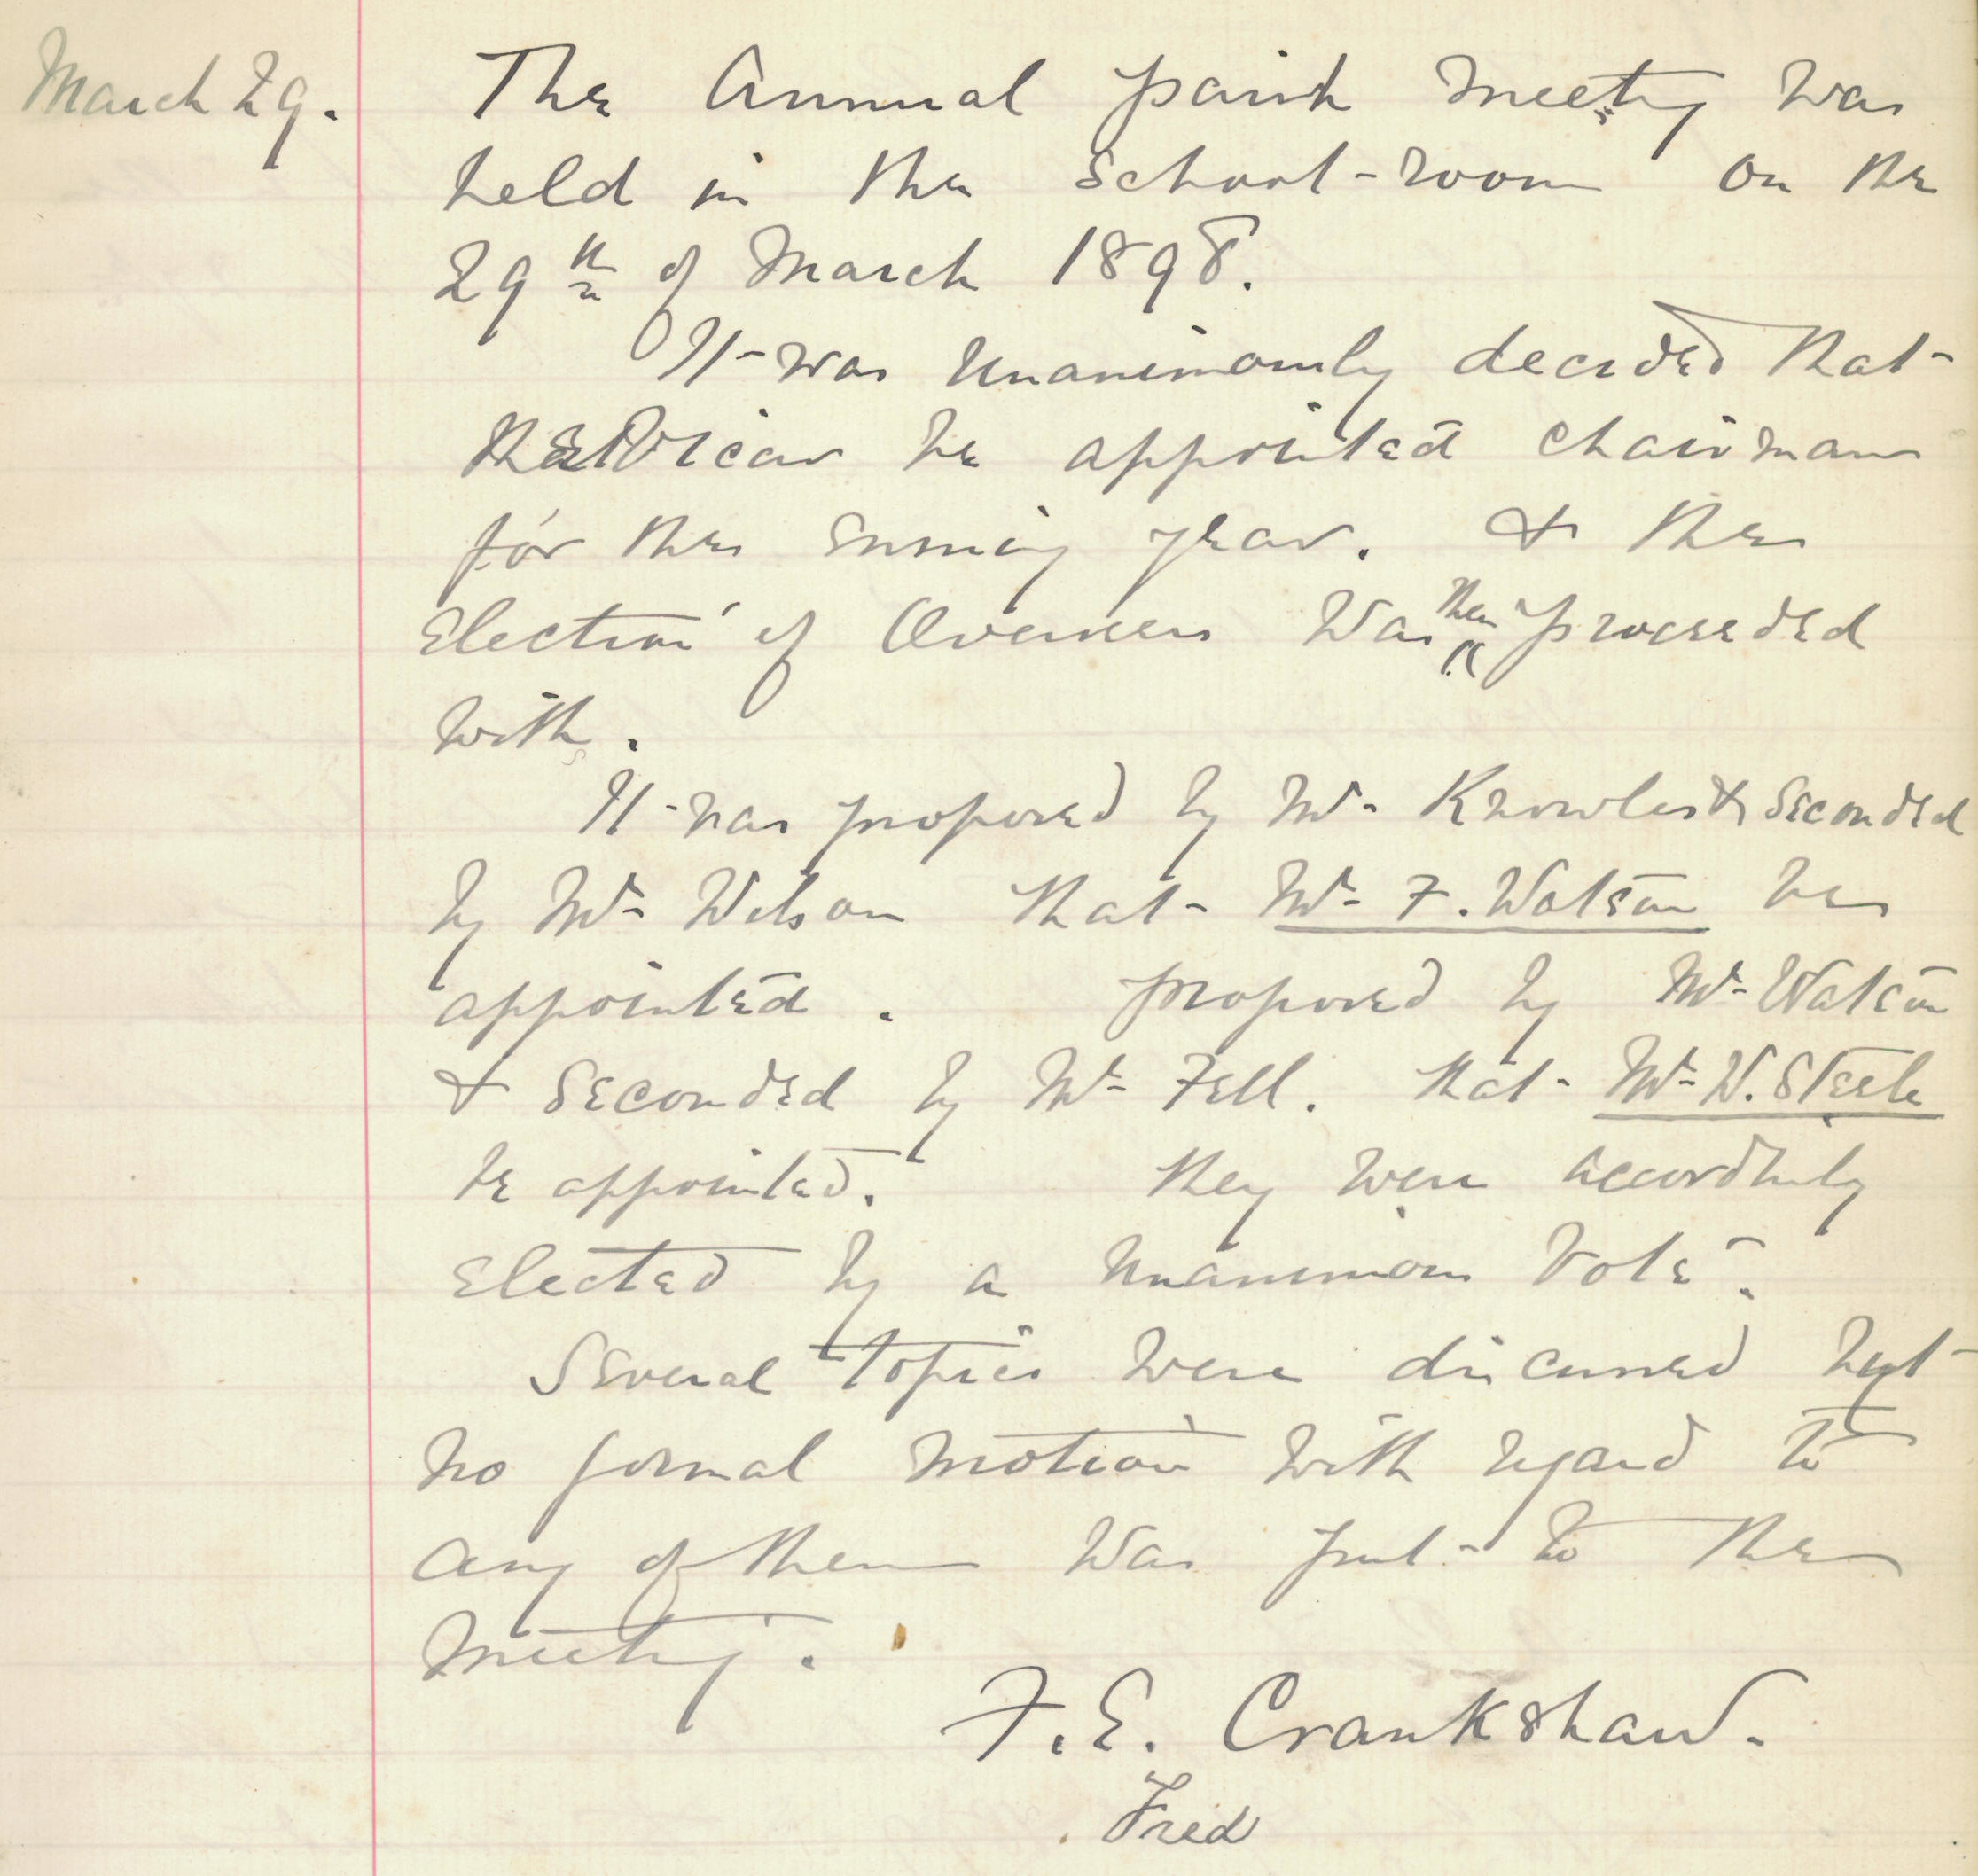 March 29. The Annual parish meeting was
held in the School-room on the
29th of March 1898.
It was unanimously decided that
the Vicar be appointed chairman
for the ensuing year. & the
Election of Overseers was then proceeded
with.
It was proposed by Mr. Knowles & Seconded
by Mr. Wilson that Mr. F. Watson be
appointed. proposed by Mr. Watson
& Seconded by Mr. Fell. that Mr. W. Steele
be appointed. they were accordingly
Elected by a unanimous Vote.
Several topics were discussed but
no formal motion with regard to
any of them was put to the
meeting.
F. E. Crankshaw.
Fred